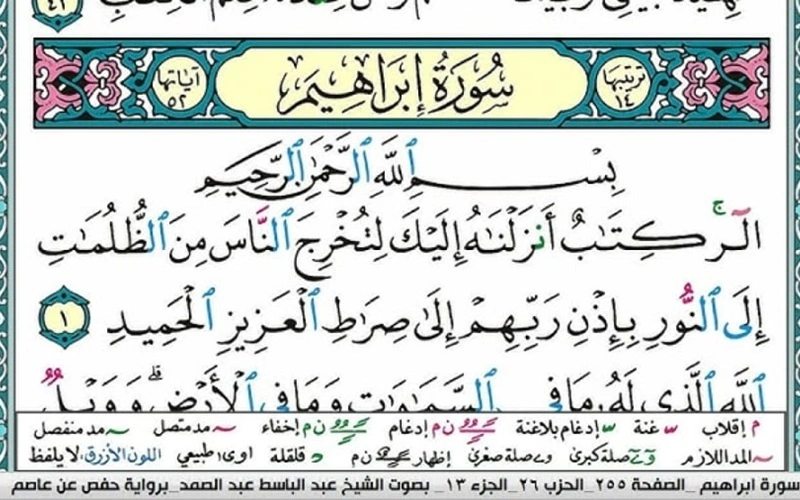 ترتيبها ١٤
سُورَةُ إِبْرَاهِيمَ
آياتها ٥٢
بِسْمِ ٱللَّهِ ٱلرَّحْمَٰنِ ٱلرَّحِيمِ
الٓر ۚ كِتَٰبٌ أَنزَلْنَٰهُ إِلَيْكَ لِتُخْرِجَ ٱلنَّاسَ مِنَ ٱلظُّلُمَٰتِ
إِلَى ٱلنُّورِ بِإِذْنِ رَبِّهِمْ إِلَىٰ صِرَٰطِ ٱلْعَزِيزِ ٱلْحَمِيدِ ١
ٱللَّهِ ٱلَّذِى لَهُۥ مَا فِى ٱلسَّمَٰوَٰتِ وَمَا فِى ٱلْأَرْضِ ۗ وَوَيْلٌ
م إقلاب غنة إدغام بلاغنة ن م إدغام ن م إخفاء مد متصل مد منفصل
المد اللازم صلة كبرى صلة صغرى إظهار ن م قلقلة اوى ا طبيعي اللون الأزرق لا يلفظ
سورة ابراهيم _الصفحة ٢٥٥_ الحزب ٢٦_ الجزء ١٣_ بصوت الشيخ عبد الباسط عبد الصمد_برواية حفص عن عاصم